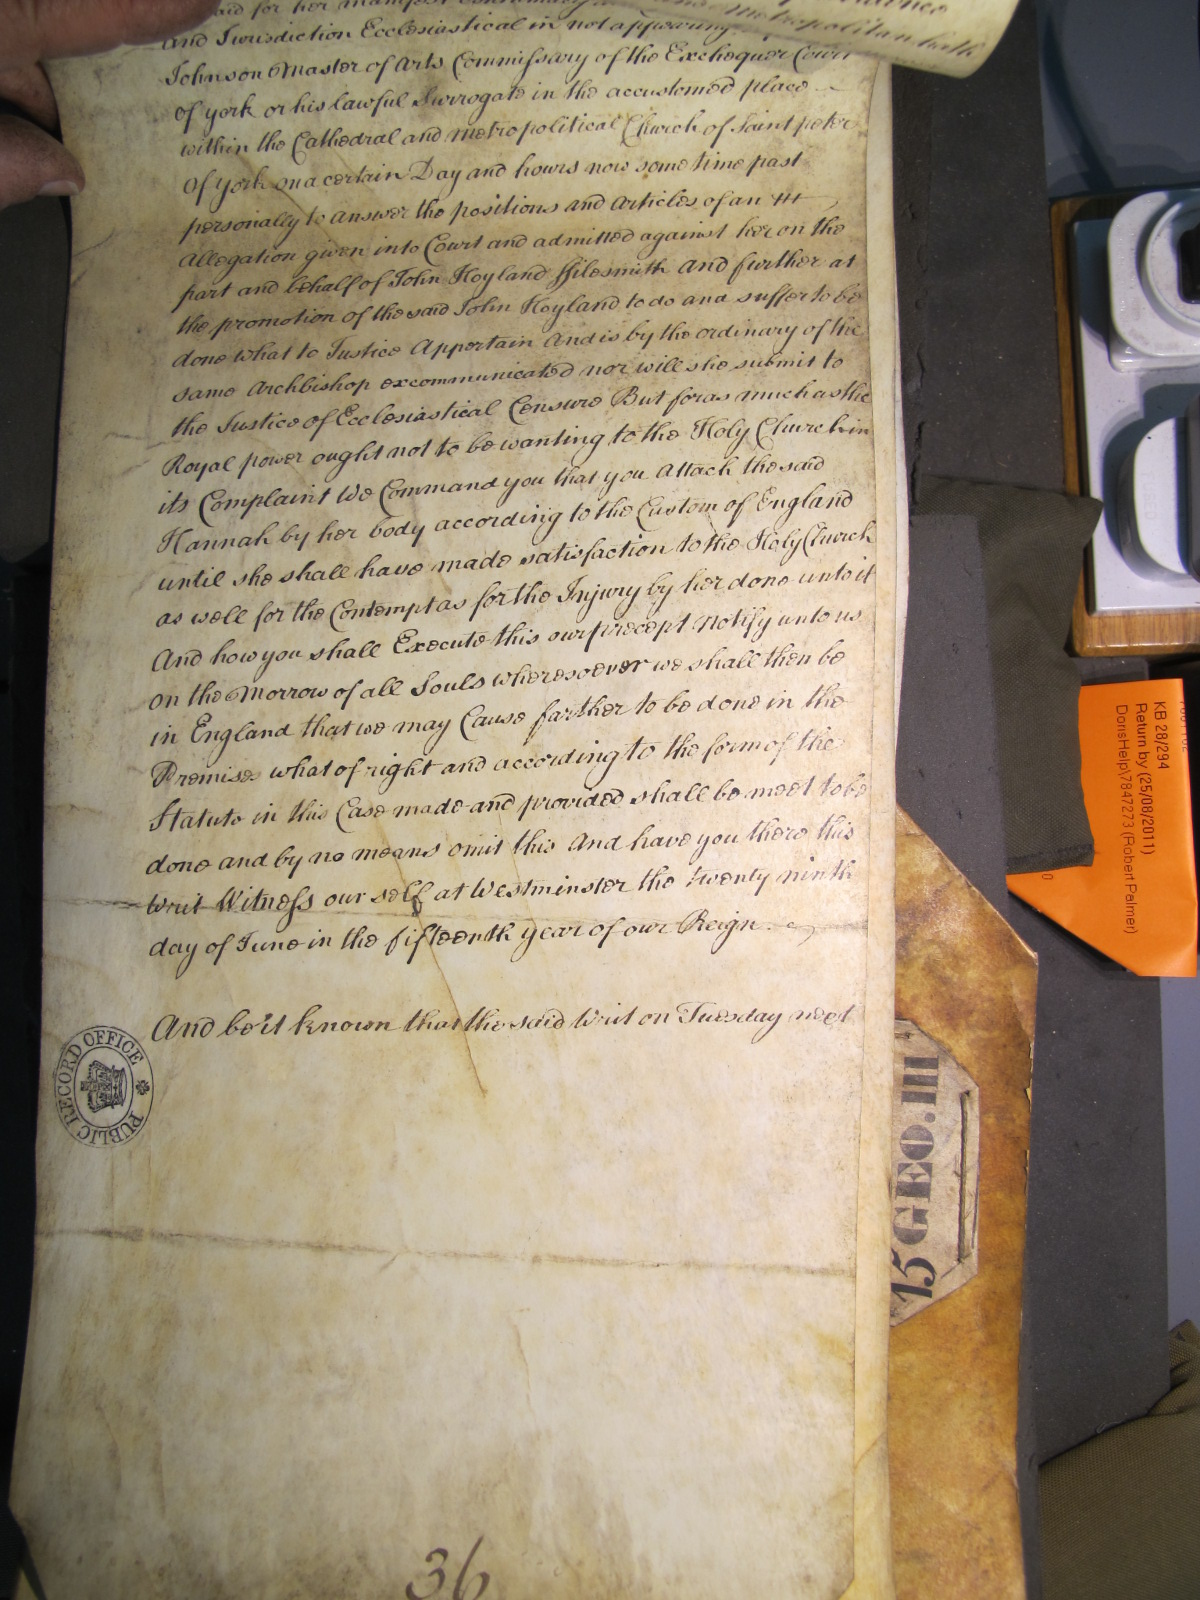 said for her manifest
And Jurisdiction Ecclesiastical in not appearing
metropolitan hath
Johnson Master of Arts Commissary of the Exchequer Court
of york or his lawful Surrogate in the accustomed place
within the Cathedral and metropolitical Church of Saint peter
of york on a certain Day and hours now some time past
personally to answer the positions and Articles of an
Allegation given into Court and admitted against her on the
part and behalf of John Hoyland ffilesmith And further at
the promotion of the said John Hoyland to do and suffer to be
done what to Justice Appertain And is by the ordinary of the
same Archbishop excommunicated nor will she submit to
the Justice of Ecclesiastical Censure But foras much as the
Royal power ought not to be wanting to the Holy Church in
its Complaint We Command you that you Attach the said
Hannah by her body according to the Custom of England
until she shall have made satisfaction to the Holy Church
as well for the Contempt as for the Injury by her done unto it
And how you shall Execute this our precept Notify unto us
on the Morrow of all Souls wheresoever we shall then be
in England that we may Cause farther to be done in the
Premises what of right and according to the form of the
Statute in this Case made and provided shall be meet to be
done and by no means omit this And have you there this
Writ Witness our self at Westminster the twenty ninth
day of June in the fifteenth year of our Reign
And be it known that the said Writ on Tuesday next
PUBLIC RECORD OFFICE
36
15 GEO. III
KB 28/294
Return by (25/08/2011)
DorisHelp\7847273 (Robert Palmer)